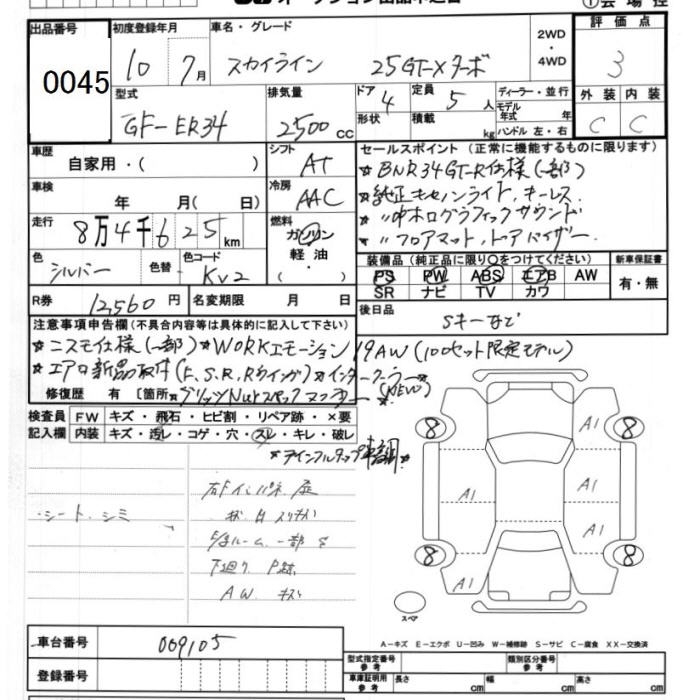 出品番号
0045
初度登録年月
10 7月
車名・グレード
スカイライン 25GT-Xターボ
2WD
・
4WD
評価点
3
外装 内装
C C
型式
GF-ER34
排気量
2500 CC
ドア 4
形状
定員 5 人
積載 kg
ディーラー・並行
モデル年式 年
ハンドル 左・右
車歴
自家用・( )
シフト
AT
車検
年 月( 日)
冷房
AAC
走行
8万4千625 km
燃料
ガソリン
軽油
( ・ )
色
シルバー
色替
色コード
KV2
R券 12,560 円
名変期限 月 日
セールスポイント (正常に機能するものに限ります)
★BNR34GT-R仕様(一部)
★純正キセノンライト、キーレス
★〃ホログラフィックサウンド
★〃フロアマット、ドアバイザー
装備品 (純正品に限り○をつけてください)
PS PW ABS エアB AW
SR ナビ TV カワ
新車保証書
有・無
後日品
Sキーなど
注意事項申告欄 (不具合内容等は具体的に記入して下さい)
★ニスモ仕様(一部)★WORKエモーション19AW(100セット限定モデル)
★エアロ新品取付(F.S.R.Rウイング)★インタークーラー★
(NEW)
修復歴 有 [箇所
検査員記入欄
FW キズ・飛石・ヒビ割・リペア跡・×要
内装 キズ・汚レ・コゲ・穴・スレ・キレ・破レ
・シート、シミ
下廻り P跡
AW キズ
8 8 8 8
A1 A1 A1 A1 A1
スペア
A-キズ E-エクボ U-凹み W-補修跡 S-サビ C-腐食 XX-交換済
車台番号 009105
登録番号
型式指定番号 参考
類別区分番号 参考
車庫証明用 参考 長さ cm 幅 cm 高さ cm